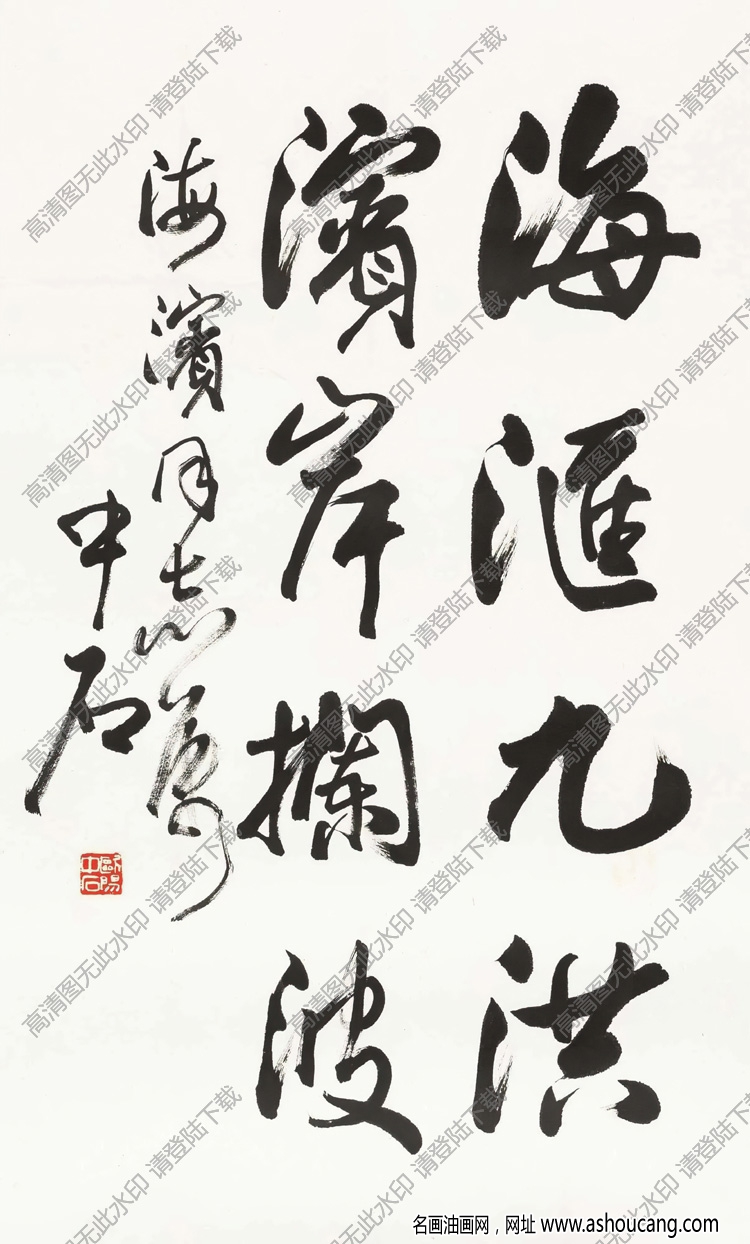 海滙九洪
濱岸攔波
海濱同志属
中石
歐陽中石
高清图无此水印 请登陆下载
名画油画网，网址 www.ashoucang.com